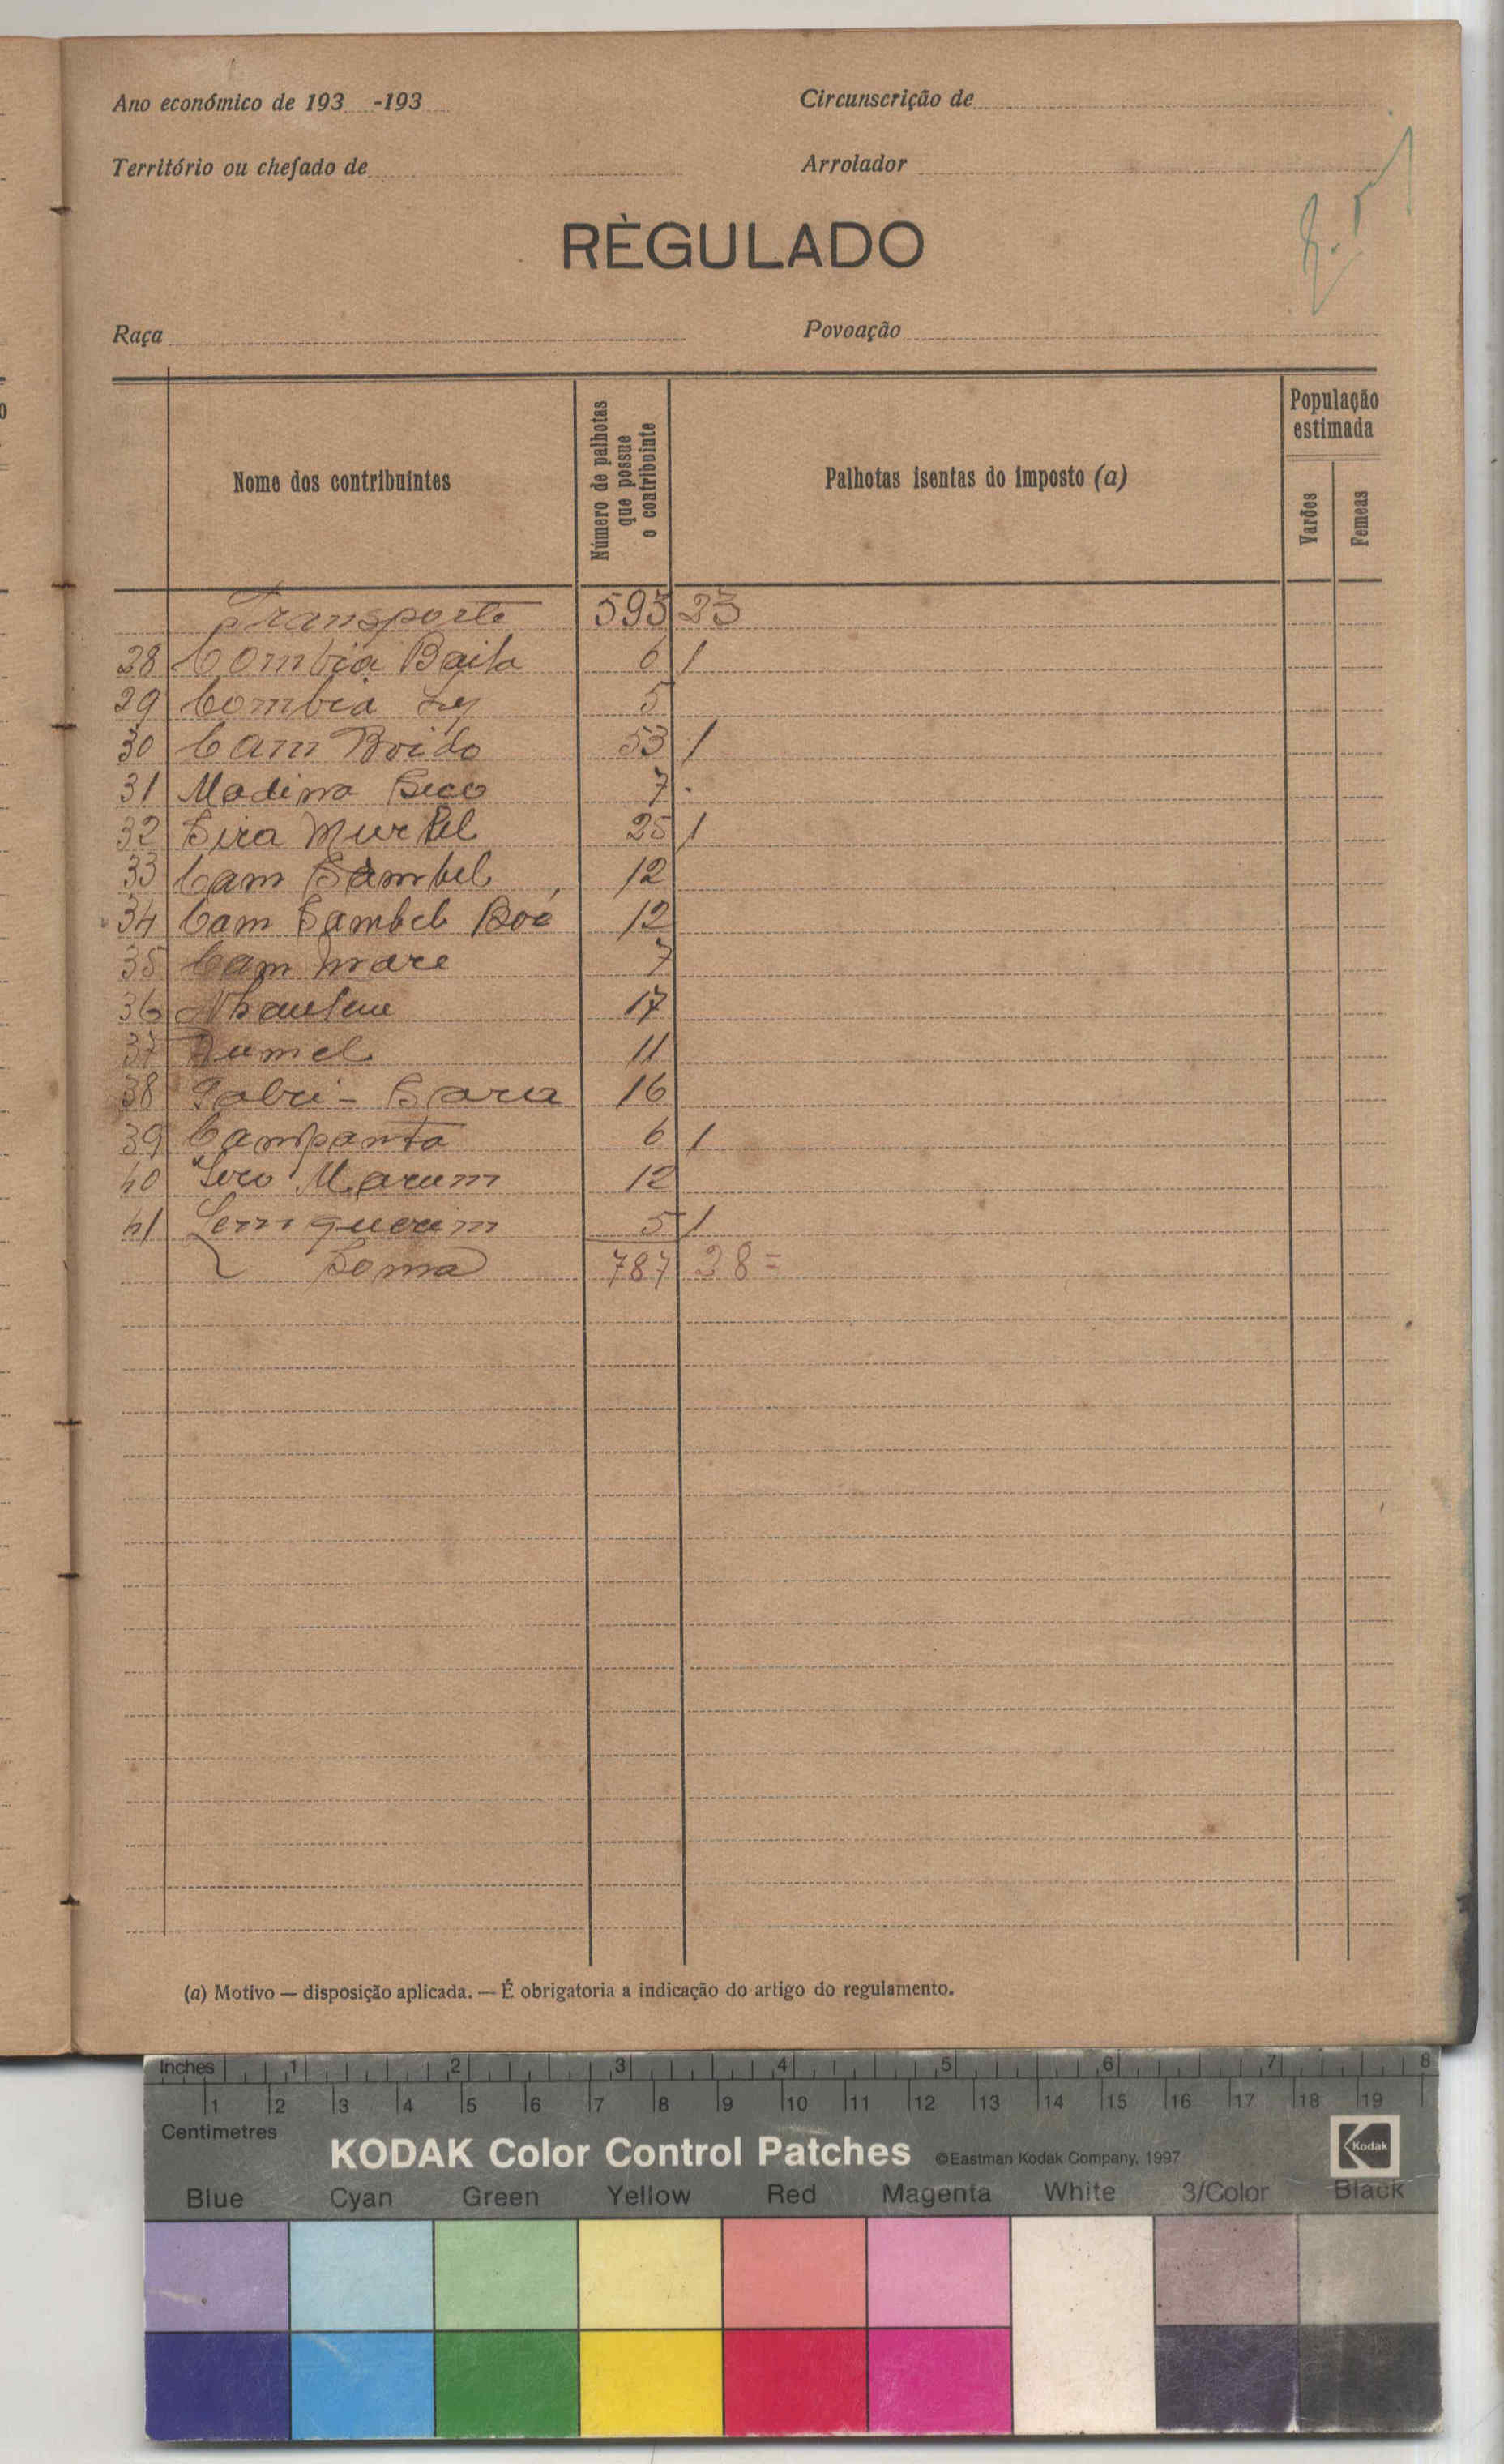 Ano económico de 193 -193 Circunscrição de
Território ou chefado de Arrolador
RÈGULADO
Raça Povoação
Nome dos contribuintes
Número de palhotas que possue o contribuinte
Palhotas isentas do imposto (a)
População estimada
Varões
Femeas
Transporte 593 23
28 Combia Baila 6 1
29 Combia 5
30 Cam Boido 53 1
31 Madina Seco 7 .
32 Sira Mur 25 1
33 Cam Sambel 12
34 Cam Sambel Boé 12
35 Cam mare 7
36 17
37 Dumel 11
38 Gabú - Sara 16
39 Campanta 6 1
40 Soro Marum 12
41 5 1
Soma 787 28=
(a) Motivo — disposição aplicada. — É obrigatoria a indicação do artigo do regulamento.
Inches 1 2 3 4 5 6 7 8
1 2 3 4 5 6 7 8 9 10 11 12 13 14 15 16 17 18 19
Centimetres
KODAK Color Control Patches ©Eastman Kodak Company, 1997 Kodak
Blue Cyan Green Yellow Red Magenta White 3/Color Black